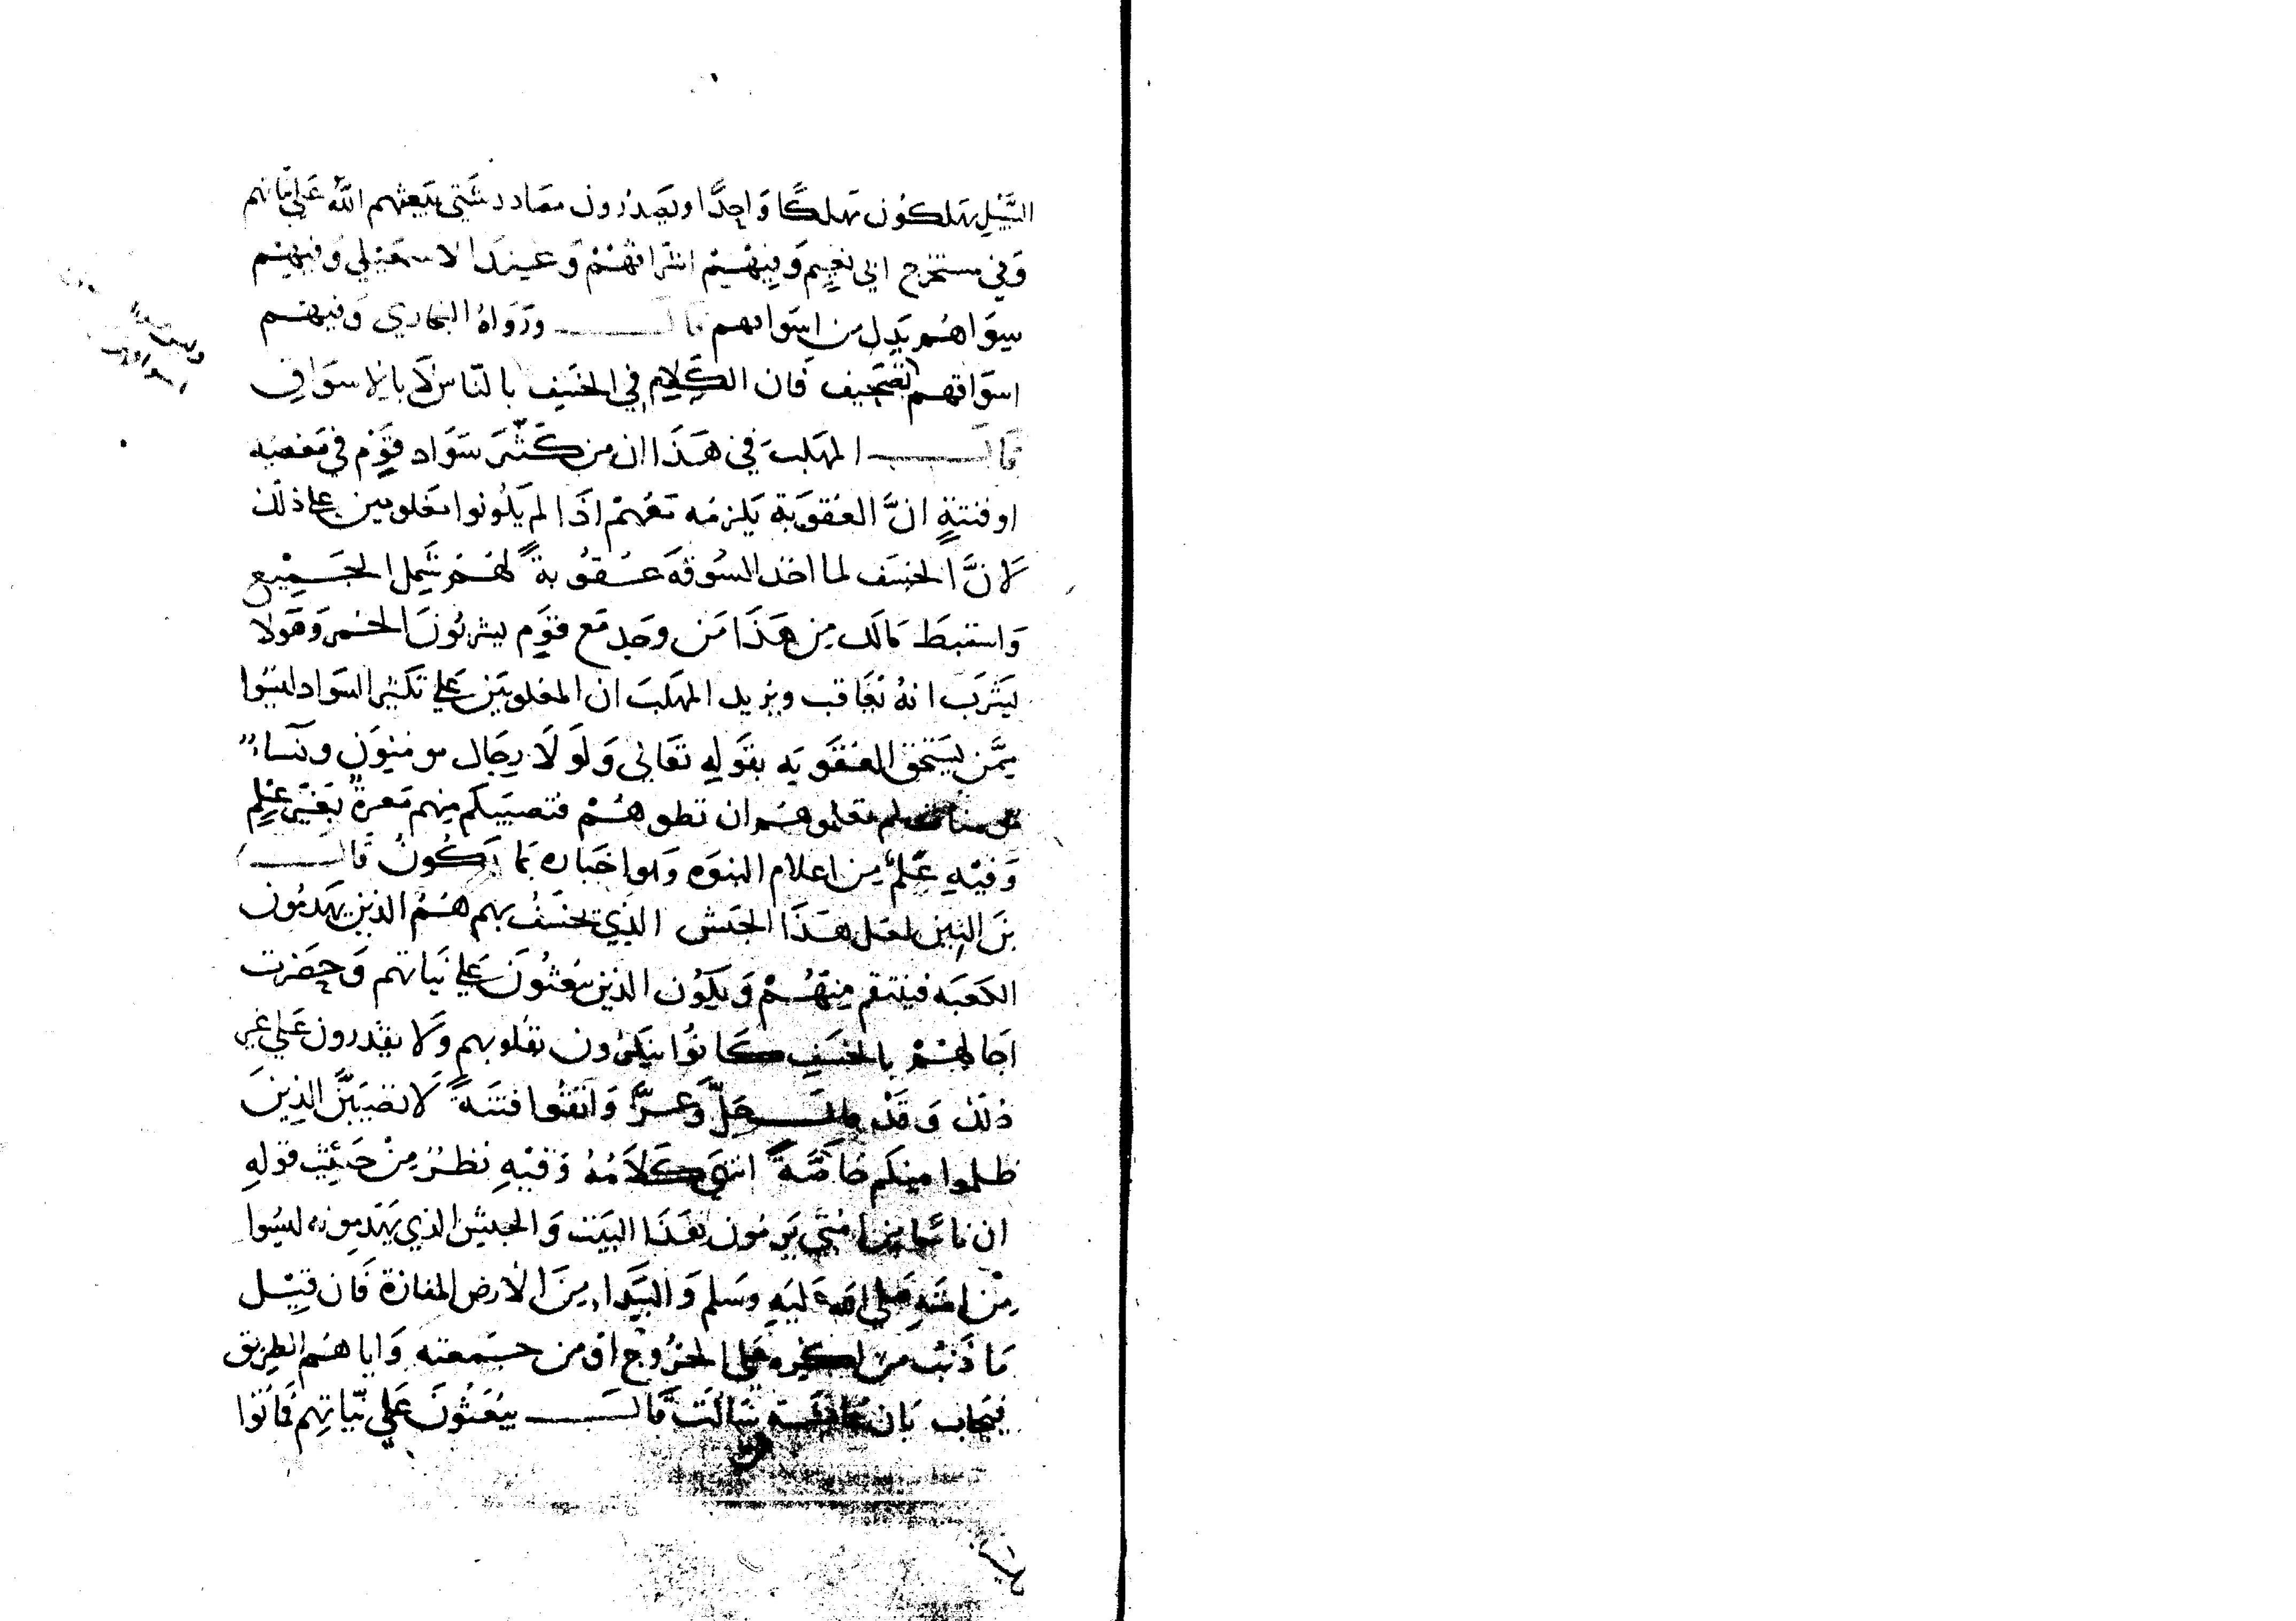 السَّبيل يهلكون مهلكًا وَاحِدًا ويصدُرون مصادر شَتَّى يبعثهم اللهُ عَلى نياتهم
وَفي مستخرج ابي نعيم وَفِيْهِمْ اشرافهُمْ وَعِندَ الاسمعيلي وَفيهم
سِوَاهُم بَدل من اسوَاقهم قال وروَاهُ البخاري وَفيهم
اسوَاقهم تصحيف فان الكلام في الخسف بالناس لَا بالاسوَاق
قال المهلب في هَذَا ان من كَثَّرَ سَوَاد قَوْم في معصيه
او فتنةٍ انَّ العُقوبَة يَلزمُه مَعَهُمْ اذَا لم يكُونوا مَغلوبين على ذلك
لانَّ الخسَف لما اخذ السُوقَه عُقُوبةً لهُم شمل الجميع
وَاستنبطَ مَالك مِن هَذَا مَن وجد مَع قَوم يشربُونَ الخمر وَهوَ لا
يَشرَب انهُ يُعَاقب ويُريد المهَلب ان المغلوبين عَلى تكثير السَوَاد ليسُوا
مِمَّن يستَحق العُقوبَه بقَولهِ تعَالى وَلَولَا رِجَال مومنُون ونسَاء
مومنات لم تعلموهُم ان تطوهُمْ فتصيبكم مِنهم مَعرة بغَير عِلمٍ
وَفيْهِ عَلَم مِن اعلام النبوَه وَهوا خباره بمَا يَكُونُ قَال
بن التين لعل هَذَا الجَيش الذِي يخسَفُ بهم هُمُ الذين يَهدمُون
الكَعبَه فينتقم مِنهُمْ وَيكُون الذين يُبعَثُونَ عَلى نيَاتهم وَحضرت
اجَالهُمْ بالخسفِ كَانوا ينكرُون بقلوبهم وَلَا يقدرون عَلى غير
ذلك وَقَدْ قال جَلَّ وَعَزَّ وَاتقُوا فتنَةً لَا تصيبَنَّ الذِينَ
ظلموا منكم خاصَّةً انتهَى كَلَامُهُ وَفيْهِ نظرٌ مِنْ حَيْث قولهِ
ان نَاسًا مِن امتي يَومُون هَذَا البَيت وَالجيش الذي يَهدِمونه ليسُوا
مِنْ امتهِ صلى الله عَليهِ وَسَلم وَالبَيدَا مِنَ الارض المفازة فَان قيْل
مَا ذَنْبُ من اكره على الخرُوج اوْ من جمعته وَاياهُم الطريق
فيُجاب بَان عَائشة سَالَت قَال يُبعَثُونَ عَلى نيّاتهِم فَمَاتوا